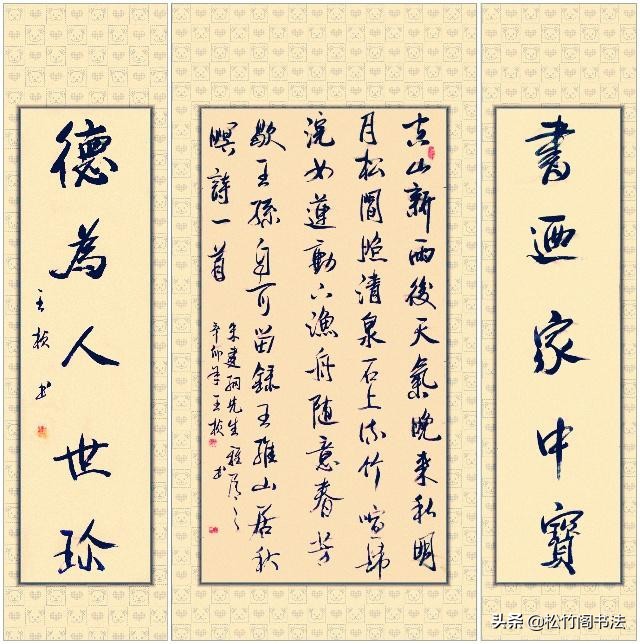 書画家中寶
空山新雨後天氣晚来秋明
月松間照清泉石上流竹喧歸
浣女蓮動下漁舟随意春芳
歇王孫自可留録王維山居秋
暝詩一首
朱建 先生雅
辛卯年王楨书
德為人世珍
王楨书
头条 @松竹阁书法